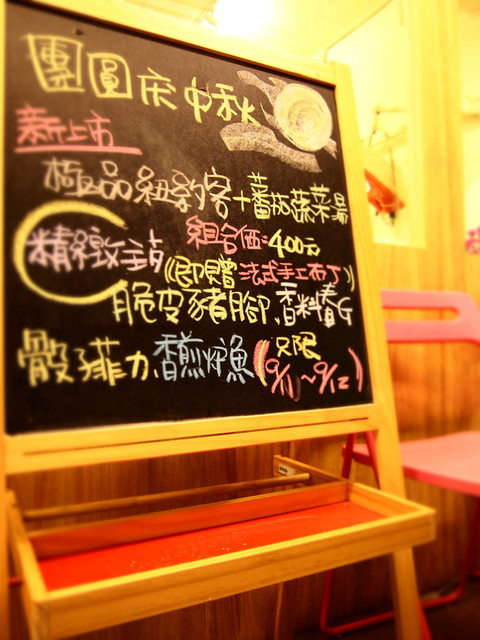 團圓庆中秋
新上市
極品紐約客+蕃茄蔬菜湯
組合価:400元
精緻主菜(即贈法式手工布丁)
脆皮豬腳、香料春G
骰子菲力、香煎炉魚(只限9/11~9/12)